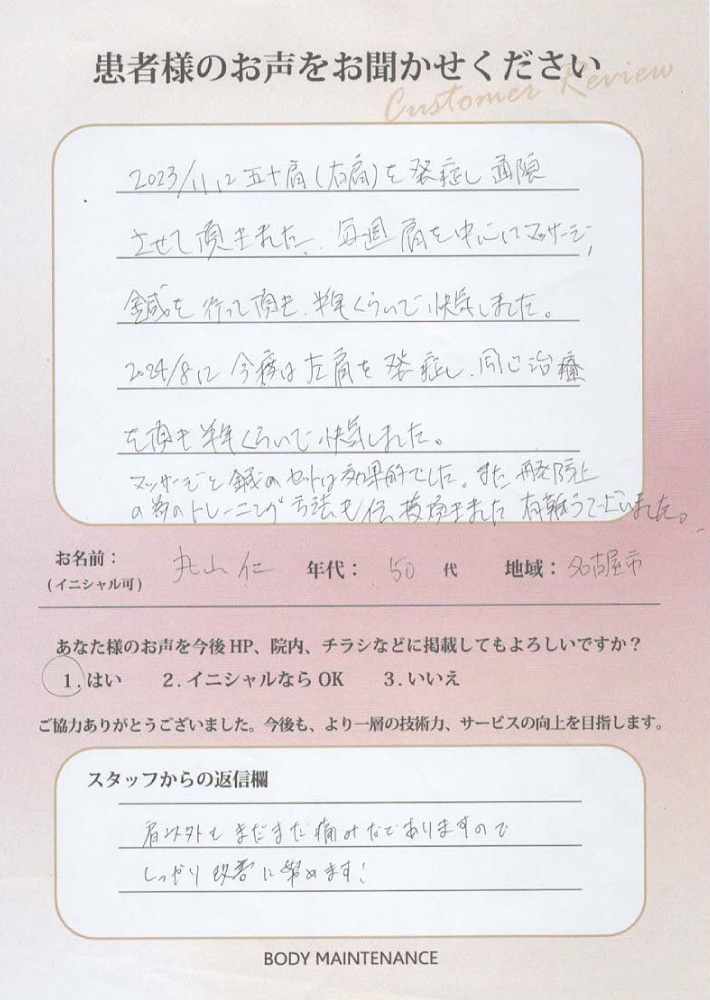 患者様のお声をお聞かせください
Customer Review
2023/11に五十肩(右肩)を発症し通院
させて頂きました、毎週肩を中心にマッサージ,
鍼を行って頂き、半年くらいで快気しました。
2024/8に今度は左肩を発症し、同じ治療
を頂き半年くらいで快気しました。
マッサージと鍼のセットは効果的でした。また再発防止
の為のトレーニング方法も伝授頂きました 有難うございました。
お名前:
(イニシャル可)
丸山仁 年代: 50 代 地域: 名古屋市
あなた様のお声を今後HP、院内、チラシなどに掲載してもよろしいですか?
1.はい 2.イニシャルならOK 3.いいえ
ご協力ありがとうございました。今後も、より一層の技術力、サービスの向上を目指します。
スタッフからの返信欄
肩以外もまだまだ痛みなどありますので
しっかり改善に努めます!
BODY MAINTENANCE